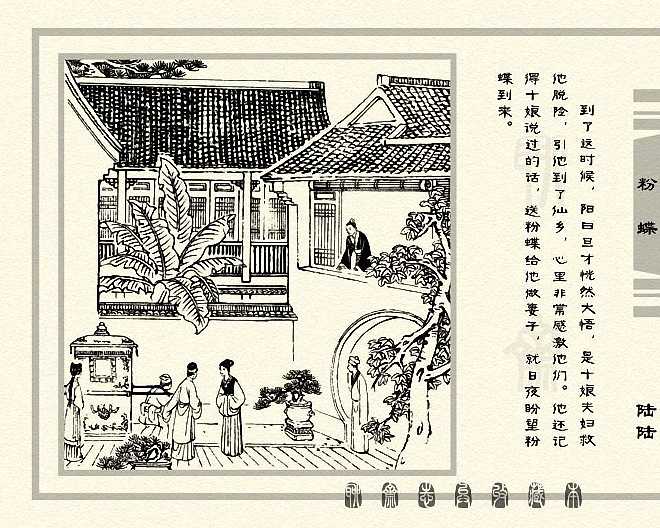 到了这时候，阳曰旦才恍然大悟，是十娘夫妇救
他脱险，引他到了仙乡，心里非常感激他们。他还记
得十娘说过的话，送粉蝶给他做妻子，就日夜盼望粉
蝶到来。
粉蝶
陆陆